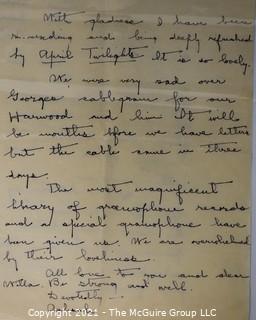 With gladness I have been
re-reading and being deeply refreshed
by April Twilights It is so lovely.
We were very sad over
Georges cablegram for our
Harwood and him It will
be months bfore we have letters
but the cable came in three
days.
The most magnificent
library of gramophone records
and a special gramophone have
been given us. We are overwhelmed
by their loveliness.
All love to you and dear
Willa. Be strong and well.
Devotedly
Copyright 2021 - The McGuire Group LLC